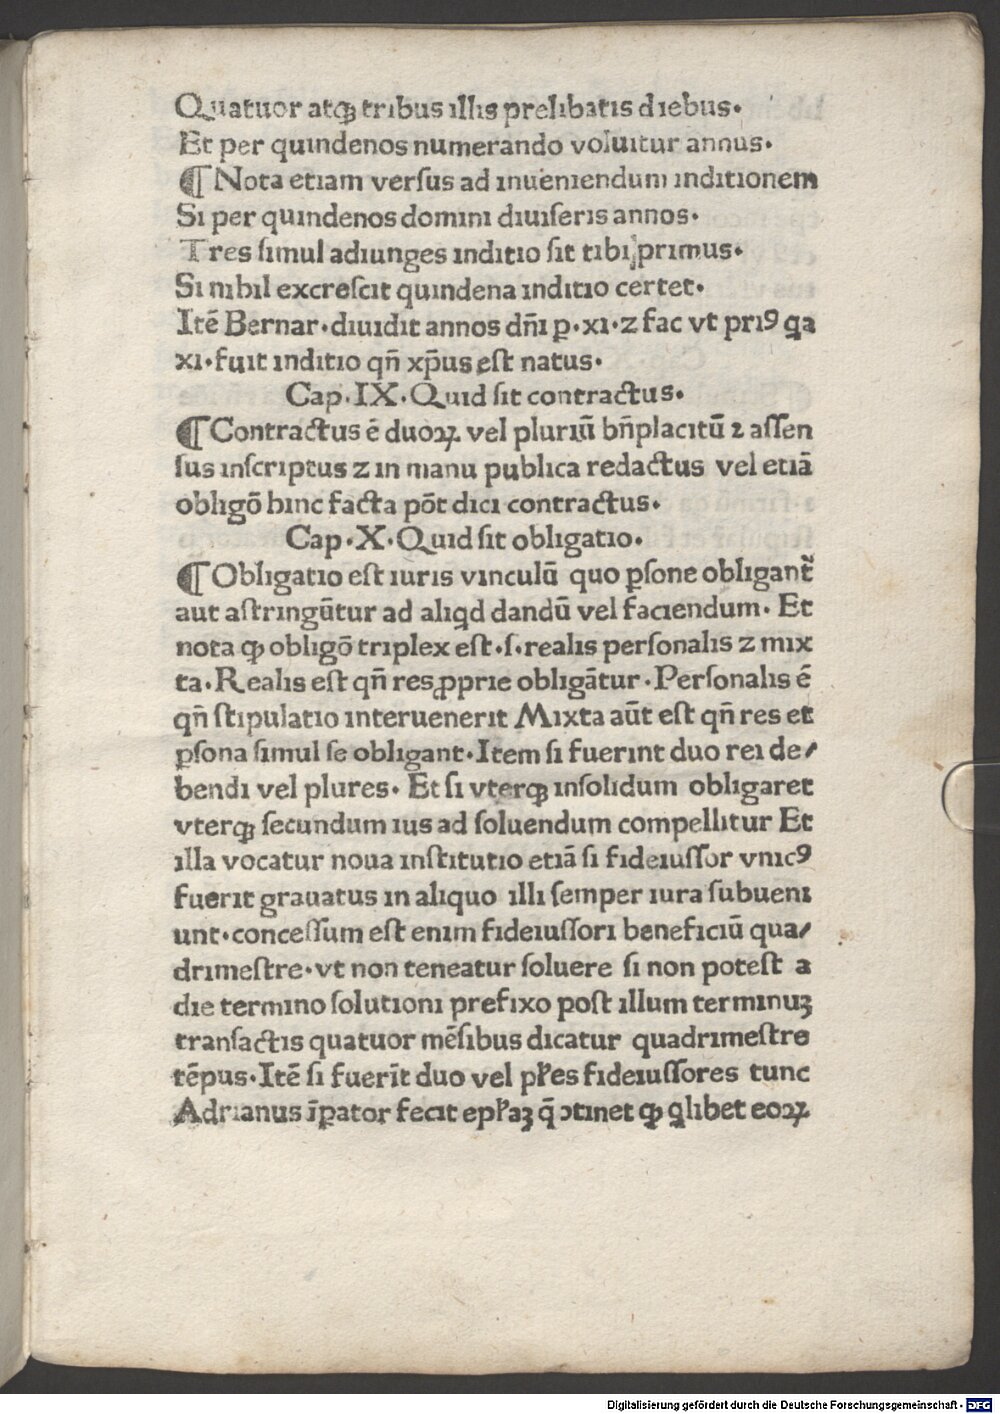 Quatuor atqꝫ tribus illis prelibatis diebus.
Et per quindenos numerando voluitur annus.
¶ Nota etiam verſus ad inueniendum inditionem
Si per quindenos domini diuiſeris annos.
Tres ſimul adiunges inditio ſit tibi primus.
Si nihil excreſcit quindena inditio certet.
Itē Bernar. diuidit annos dn̄i ꝑ .xi. ⁊ fac vt priꝰ qa
xi. fuit inditio qn̄ xp̄us eſt natus.
Cap. IX. Quid ſit contractus.
¶ Contractus ē duoꝝ vel pluriū bn̄placitū ⁊ aſſen
ſus inſcriptus ⁊ in manu publica redactus vel etiā
obligō hinc facta pōt dici contractus.
Cap. X. Quid ſit obligatio.
¶ Obligatio eſt iuris vinculū quo ꝑſone obligant᷑
aut aſtringūtur ad aliqd dandū vel faciendum. Et
nota ꝙ obligō triplex eſt .ſ. realis perſonalis ⁊ mix
ta. Realis eſt qn̄ res ꝓprie obligātur. Perſonalis ē
qn̄ ſtipulatio interuenerit Mixta aūt eſt qn̄ res et
ꝑſona ſimul ſe obligant. Item ſi fuerint duo rei de/
bendi vel plures. Et ſi vterqꝫ inſolidum obligaret
vterqꝫ ſecundum ius ad ſoluendum compellitur Et
illa vocatur noua inſtitutio etiā ſi fideiuſſor vnicꝰ
fuerit grauatus in aliquo illi ſemper iura ſubueni
unt. conceſſum eſt enim fideiuſſori beneficiū qua/
drimeſtre. vt non teneatur ſoluere ſi non poteſt a
die termino ſolutioni prefixo poſt illum terminuꝫ
tranſactis quatuor mēſibus dicatur quadrimeſtre
tēpus. Itē ſi fuerīt duo vel pl̄es fideiuſſores tunc
Adrianus īꝑator fecit epl̄aꝫ q̄ ↄtinet ꝙ qlibet eoꝝ
Digitalisierung gefördert durch die Deutsche Forschungsgemeinschaft - DFG